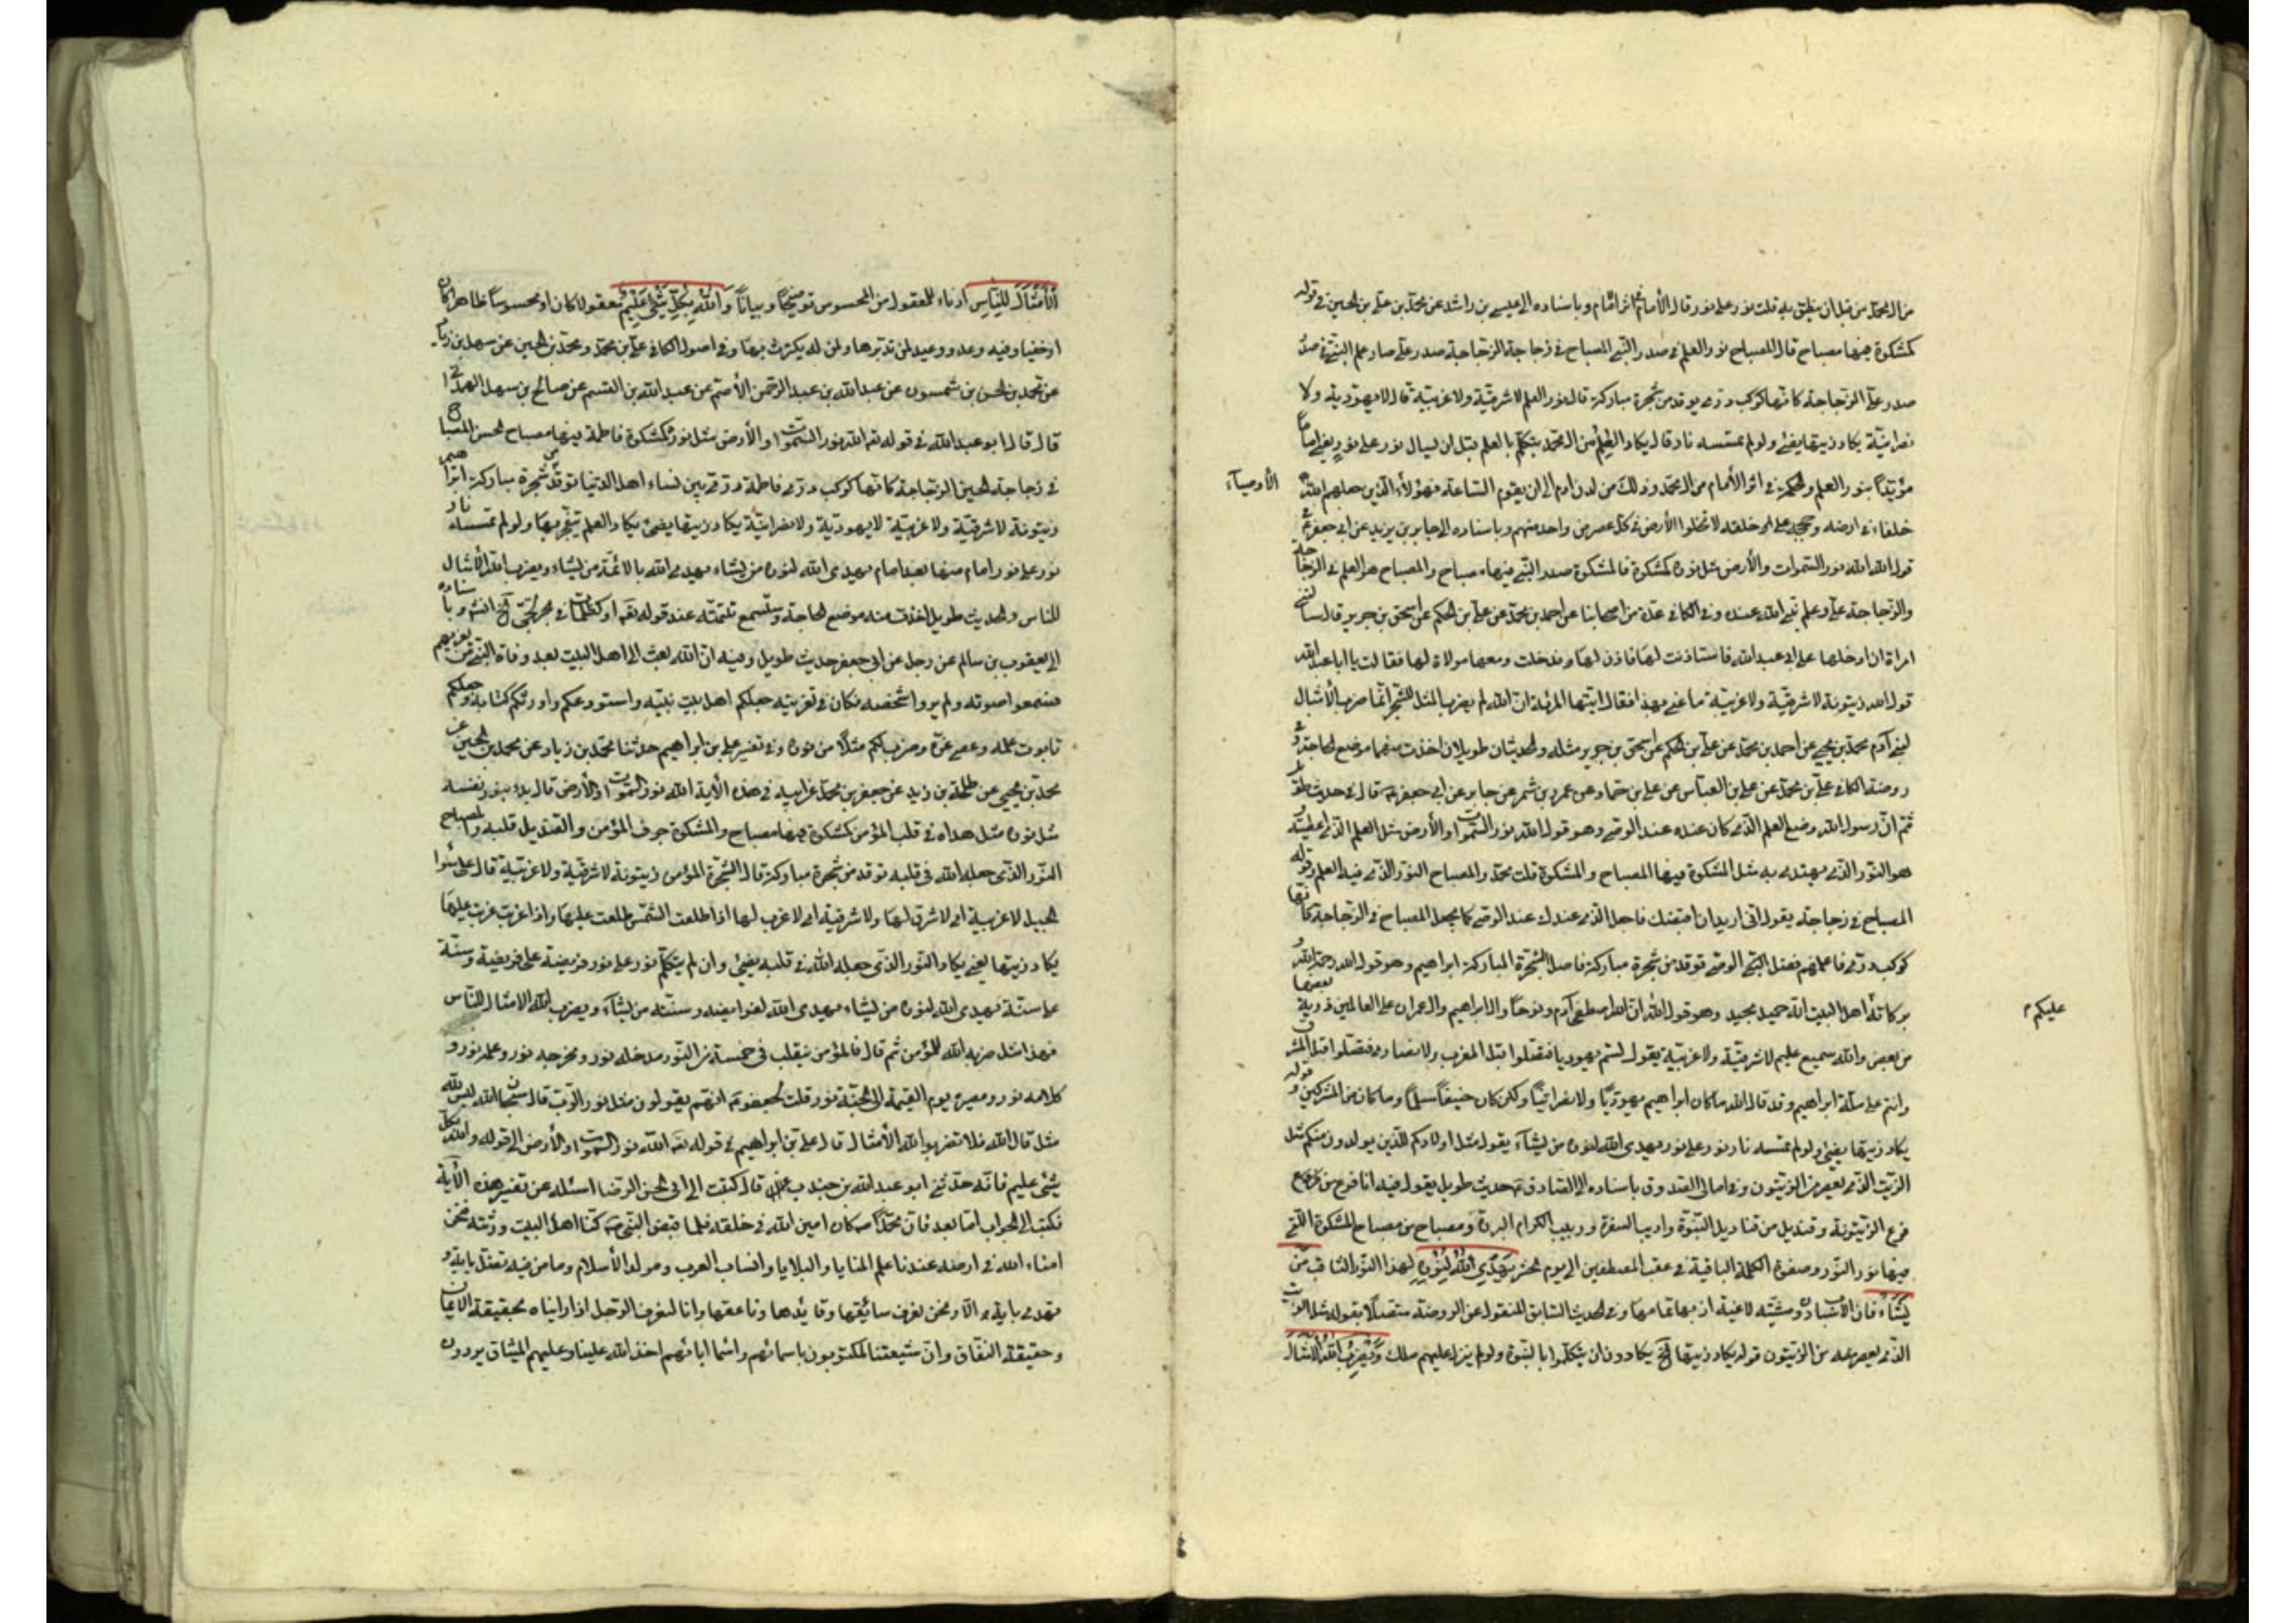 من آل محمد من قبل ان ينطق به قلت نور على نور قال الأمام فى اثر امام وباسناده الى عيسى بن راشد عن محمد بن على بن الحسين فى قوله
كمشكوة فيها مصباح قال المصباح نور العلم فى صدر النبى المصباح فى زجاجة الزجاجة صدر على صار علم النبى فى صدر
صدر على الزجاجة كانها كوكب درى يوقد من شجرة مباركة قال نور العلم لا شرقية ولا غربية قال لا يهودية ولا
نصرانية يكاد زيتها يضئ ولو لم تمسسه نار قال يكاد العالم من آل محمد يتكلم بالعلم قبل ان يسال نور على نور يعنى اماما
مؤيدا بنور العلم والحكمة فى اثر الأمام من آل محمد وذلك من لدن ادم الى ان يقوم الساعة فهؤلاء الأوصيآء الذين جعلهم الله
خلفاء فى ارضه وحججه على خلقه لا تخلوا الأرض فى كل عصر من واحد منهم وباسناده الى جابر بن يزيد عن ابى جعفر فى
قول الله الله نور السموات والأرض مثل نوره كمشكوة فالمشكوة صدر النبى فيها مصباح والمصباح هو العلم فى الزجاجة
والزجاجة على وعلم نبى الله عنده وفى الكافى عدة من اصحابنا عن احمد بن محمد عن على بن الحكم عن اسحق بن جرير قال سالتنى
امراة ان ادخلها على ابى عبد الله فاستاذنت لها فاذن لها فدخلت ومعها مولاة لها فقالت يا ابا عبد الله
قول الله زيتونة لا شرقية ولا غربية ما عنى بهذا فقال ايتها المرئة ان الله لم يضرب المثل للشجر انما ضرب الأمثال
لبنى آدم محمد بن يحيى عن احمد بن محمد عن على بن الحكم عن اسحق بن جرير مثله والحديثان طويلان اخذت منهما موضع الحاجة وفى
روضة الكافى على بن محمد عن على بن العباس عن على بن حماد عن عمرو بن شمر عن جابر عن ابى جعفر قال فى حديث طويل
ثم ان رسول الله وضع العلم الذى كان عنده عند الوصى وهو قول الله نور السموات والأرض مثل العلم الذى اعطيته
هو النور الذى يهتدى به مثل المشكوة فيها المصباح والمشكوة قلب محمد والمصباح النور الذى فيه العلم وقوله
المصباح فى زجاجة يقول انى اريد ان اقبضك فاجعل الذى عندك عند الوصى كما يجعل المصباح فى الزجاجة كانها
كوكب درى فاعلمهم فضل الوصى توقد من شجرة مباركة فاصل الشجرة المباركة ابراهيم وهو قول الله رحمة الله
وبركاته عليكم اهل البيت انه حميد مجيد وهو قول الله ان الله اصطفى آدم ونوحا وال ابراهيم وال عمران على العالمين ذرية بعضها
من بعض والله سميع عليم لا شرقية ولا غربية يقول لستم بيهود فتصلوا قبل المغرب ولا نصارى فتصلوا قبل المشرق
وانتم على ملة ابراهيم وقد قال الله ما كان ابراهيم يهوديا ولا نصرانيا ولكن كان حنيفا مسلما وما كان من المشركين وقوله
يكاد زيتها يضئ ولو لم تمسسه نار نور على نور يهدى الله لنوره من يشآء يقول مثل اولادكم الذين يولدون منكم مثل
الزيت الذى يعصر من الزيتون وفى امالى الصدوق باسناده الى الصادق حديث طويل يقول فيه انا فرع من فروع
فرع الزيتونة وقنديل من قناديل النبوة واديب السفرة وربيب الكرام البررة ومصباح من مصباح المشكوة التى
فيها نور النور وصفوة الكلمة الباقية فى عقب المصطفين الى يوم الحشر يهدى الله لنوره لهذا النور الثاقب من
يشاء فان الأسباب دون مشيته لاغية اذ بها تمامها وفى الحديث السابق المنقول عن الروضة متصلا بقوله مثل الزيت
الذى يعصر من الزيتون قوله يكاد زيتها الخ يكادون ان يتكلموا بالنبوة ولو لم ينزل عليهم ملك ويضرب الله الأمثال
الأمثال للناس ادناء للمعقول من المحسوس توضيحا وبيانا والله بكل شئ عليم معقولا كان او محسوسا ظاهرا كان
او خفيا وفيه وعد ووعيد لمن تدبرها ولمن لم يكترث بها وفى اصول الكافى على بن محمد ومحمد بن الحسن عن سهل بن زياد
عن محمد بن الحسن بن شمون عن عبد الله بن عبد الرحمن الأصم عن عبد الله بن القسم عن صالح بن سهل الهمدانى
قال قال ابو عبد الله فى قوله تعه الله نور السموات والأرض مثل نوره كمشكوة فاطمة فيها مصباح الحسن المصباح
فى زجاجة الحسين الزجاجة كانها كوكب درى فاطمة درى بين نساء اهل الدنيا توقد من شجرة مباركة ابراهيم
زيتونة لا شرقية ولا غربية لا يهودية ولا نصرانية يكاد زيتها يضئ يكاد العلم يتفجر بها ولو لم تمسسه نار
نور على نور امام منها بعد امام يهدى الله لنوره من يشاء يهدى الله بالائمة من يشاء ويضرب الله الأمثال
للناس والحديث طويل اخذت منه موضع الحاجة وستسمع تتمته عند قوله تعه او كظلمات فى بحر لجى الخ انشه وباسناده
الى يعقوب بن سالم عن رجل عن ابى جعفر حديث طويل وفيه ان الله بعث الى اهل البيت بعد وفاة النبى من يعزيهم
فسمعوا صوته ولم يروا شخصه فكان فى تعزيته جعلكم اهل بيت نبيه واستودعكم واورثكم كتابه وجعلكم
تابوت علمه وعصى عزه وضرب لكم مثلا من نوره وفى تفسير على بن ابراهيم حدثنا محمد بن زياد عن محمد بن الحسين عن
محمد بن يحيى عن طلحة بن زيد عن جعفر بن محمد عن ابيه فى هذه الأية الله نور السموات والأرض قال بدء بنور نفسه
مثل نوره مثل هداه فى قلب المؤمن كمشكوة فيها مصباح والمشكوة جوف المؤمن والقنديل قلبه والمصباح
النور الذى جعله الله فى قلبه توقد من شجرة مباركة قال الشجرة المؤمن زيتونة لا شرقية ولا غربية قال على سواء
الجبل لا غربية اى لا شرق لها ولا شرقية اى لا غرب لها اذا طلعت الشمس طلعت عليها واذا غربت غربت عليها
يكاد زيتها يعنى يكاد النور الذى جعله الله فى قلبه يضئ وان لم يتكلم نور على نور فريضة على فريضة وسنة
على سنة يهدى الله لنوره من يشاء يهدى الله لفرايضه وسننه من يشآء ويضرب الله الامثال للناس
فهذا مثل ضربه الله للمؤمن ثم قال فالمؤمن ينقلب فى خمسة من النور مدخله نور ومخرجه نور وعلمه نور و
كلامه نور ومصيره يوم القيمة الى الجنة نور قلت لجعفر انهم يقولون مثل نور الرب قال سبحان الله ليس لله
مثل قال الله فلا تضربوا لله الأمثال قال على بن ابراهيم فى قوله تعه الله نور السموات والأرض الى قوله والله بكل
شئ عليم فانه حدثنى ابو عبد الله بن جندب قال كتبت الى ابى الحسن الرضا اسئله عن تفسير هذه الآية
فكتب الى الجواب اما بعد فان محمدا ص كان امين الله فى خلقه فلما قبض النبى ص كنا اهل البيت ورثته فنحن
امناء الله فى ارضه عندنا علم المنايا والبلايا وانساب العرب ومولد الأسلام وما من فئة تضل باية و
تهدى باية الا ونحن نعرف سائقها وقائدها وناعقها وانا لنعرف الرجل اذا رايناه بحقيقة الأيمان
وحقيقة النفاق وان شيعتنا المكتوبون باسمائهم واسماء ابائهم اخذ الله علينا وعليهم الميثاق يردون